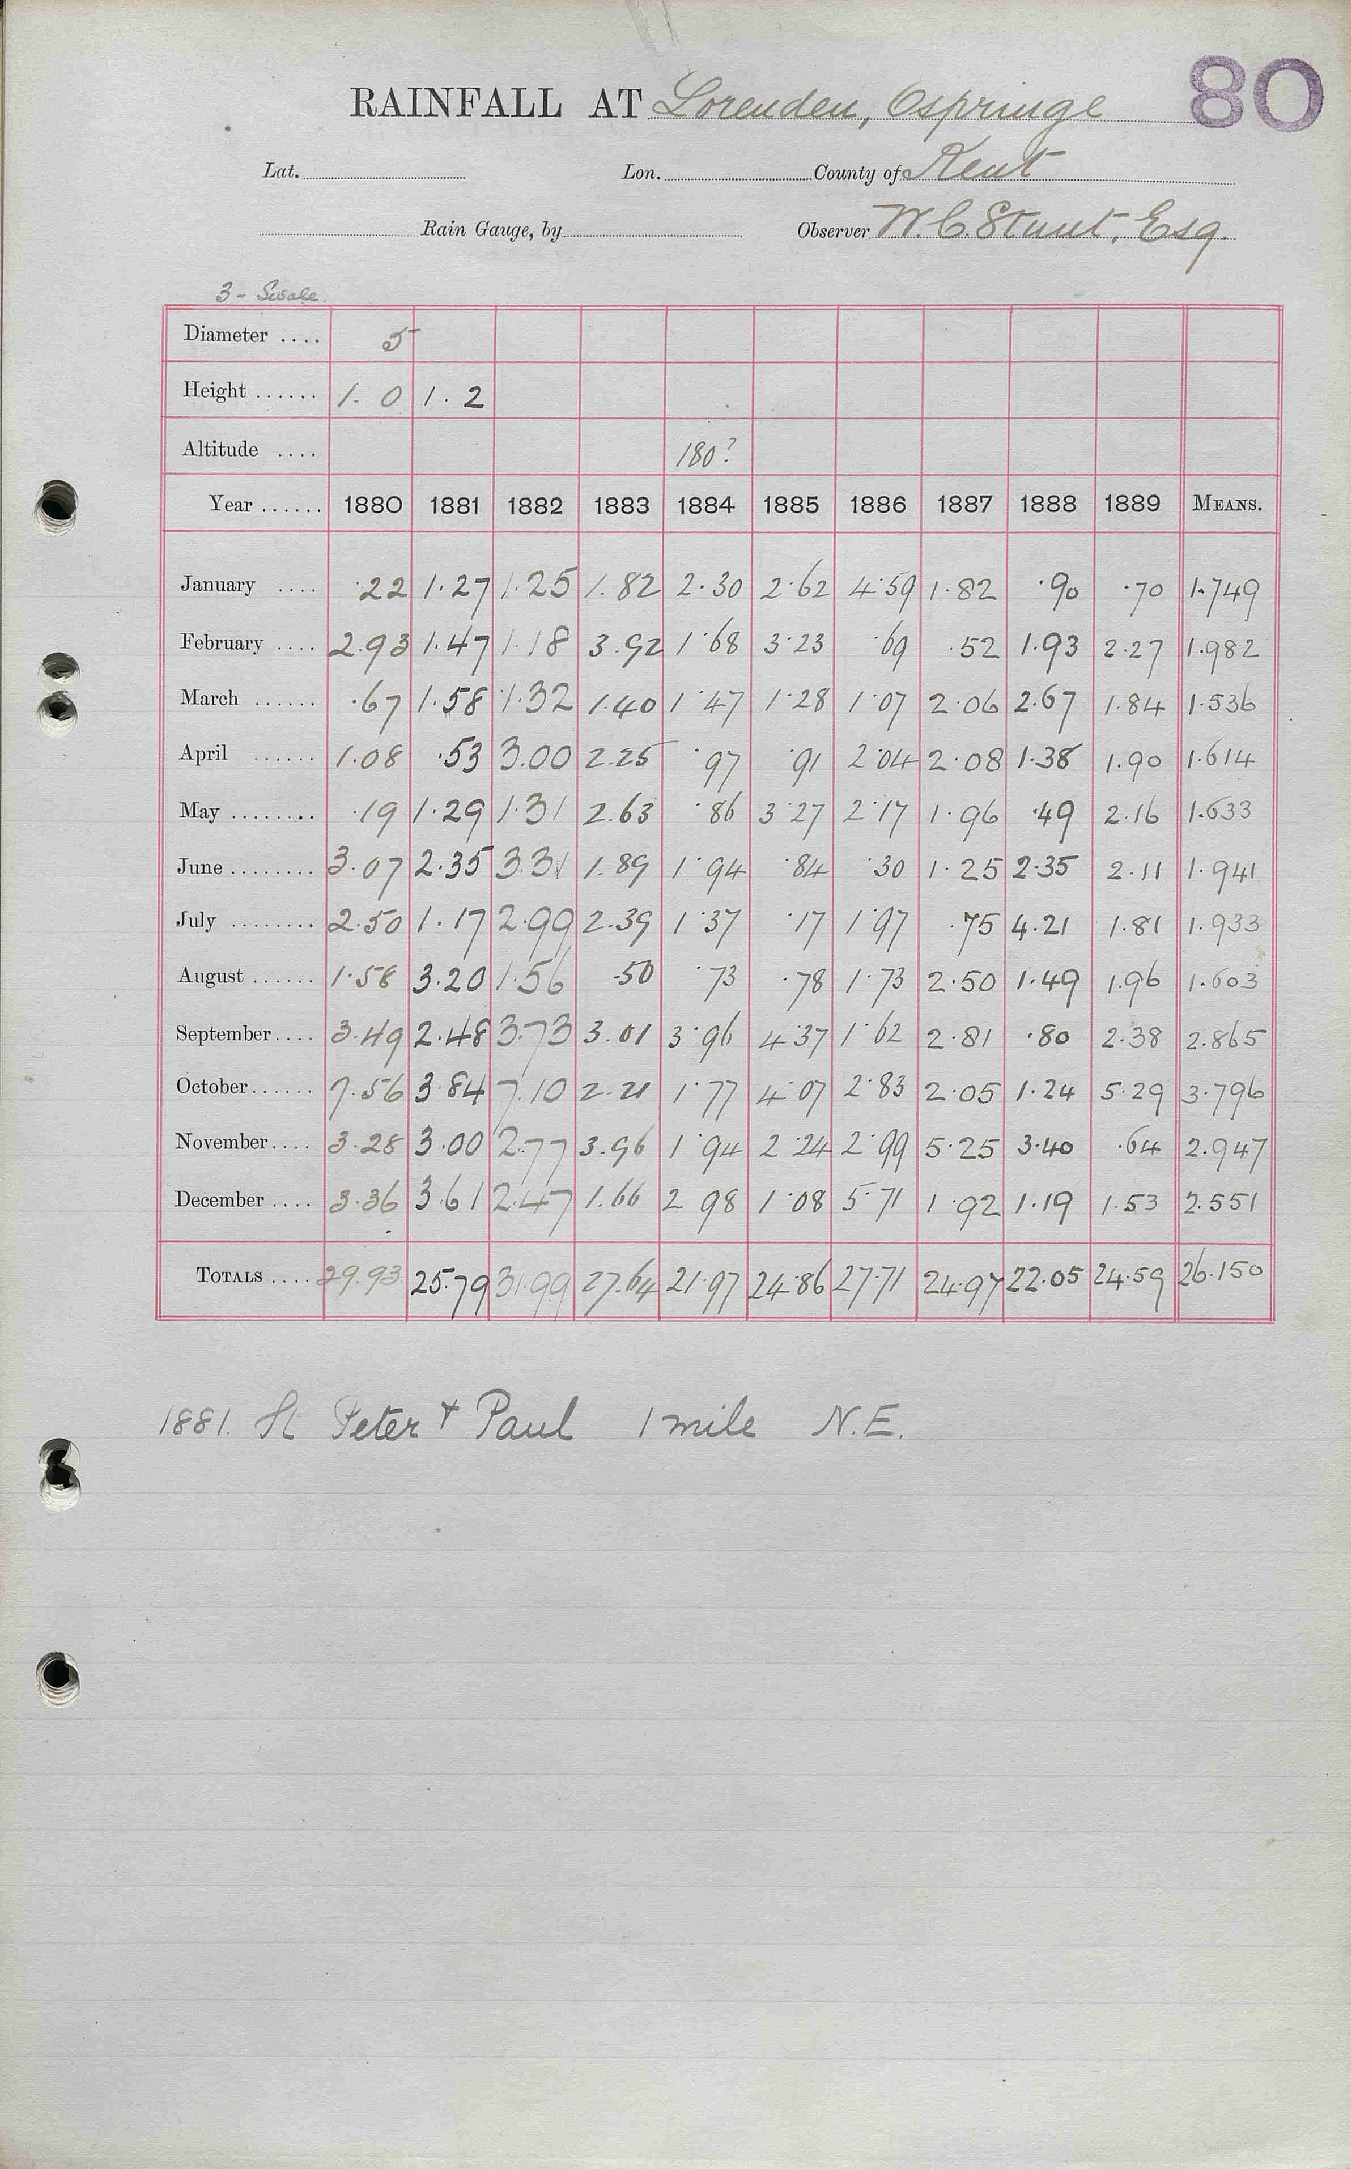 80
RAINFALL AT Lorenden, Ospringe
Lat. Lon. County of Kent
Rain Gauge, by Observer W. C. Stunt, Esq.
3 - Swale
Diameter .... 5
Height ...... 1. 0 1. 2
Altitude .... 180?
Year ...... 1880 1881 1882 1883 1884 1885 1886 1887 1888 1889 MEANS.
January .... ·22 1·27 1·25 1.82 2·30 2·62 4·59 1·82 ·90 ·70 1·749
February .... 2.93 1·47 1·18 3.92 1·68 3·23 ·69 ·52 1·93 2·27 1·982
March ...... ·67 1·58 1·32 1.40 1·47 1·28 1·07 2·06 2·67 1·84 1·536
April ...... 1.08 ·53 3.00 2.25 ·97 ·91 2·04 2·08 1·38 1.90 1·614
May ........ ·19 1·29 1·31 2.63 ·86 3·27 2·17 1·96 ·49 2·16 1·633
June ........ 3.07 2·35 3.31 1.89 1·94 ·84 ·30 1·25 2·35 2·11 1·941
July ........ 2.50 1·17 2.99 2.39 1·37 ·17 1·97 ·75 4·21 1·81 1·933
August ...... 1·58 3·20 1·56 ·50 ·73 ·78 1·73 2·50 1·49 1.96 1·603
September .... 3.49 2·48 3·73 3.01 3·96 4·37 1·62 2·81 ·80 2·38 2.865
October ...... 7.56 3·84 7.10 2.21 1·77 4·07 2·83 2·05 1·24 5·29 3·796
November .... 3·28 3·00 2.77 3.96 1·94 2·24 2·99 5·25 3·40 ·64 2.947
December .... 3·36 3·61 2·47 1.66 2·98 1·08 5·71 1·92 1·19 1·53 2.551
TOTALS .... 29.93 25·79 31·99 27·64 21·97 24·86 27·71 24·97 22·05 24·59 26·150
1881. St Peter + Paul 1 mile N.E.